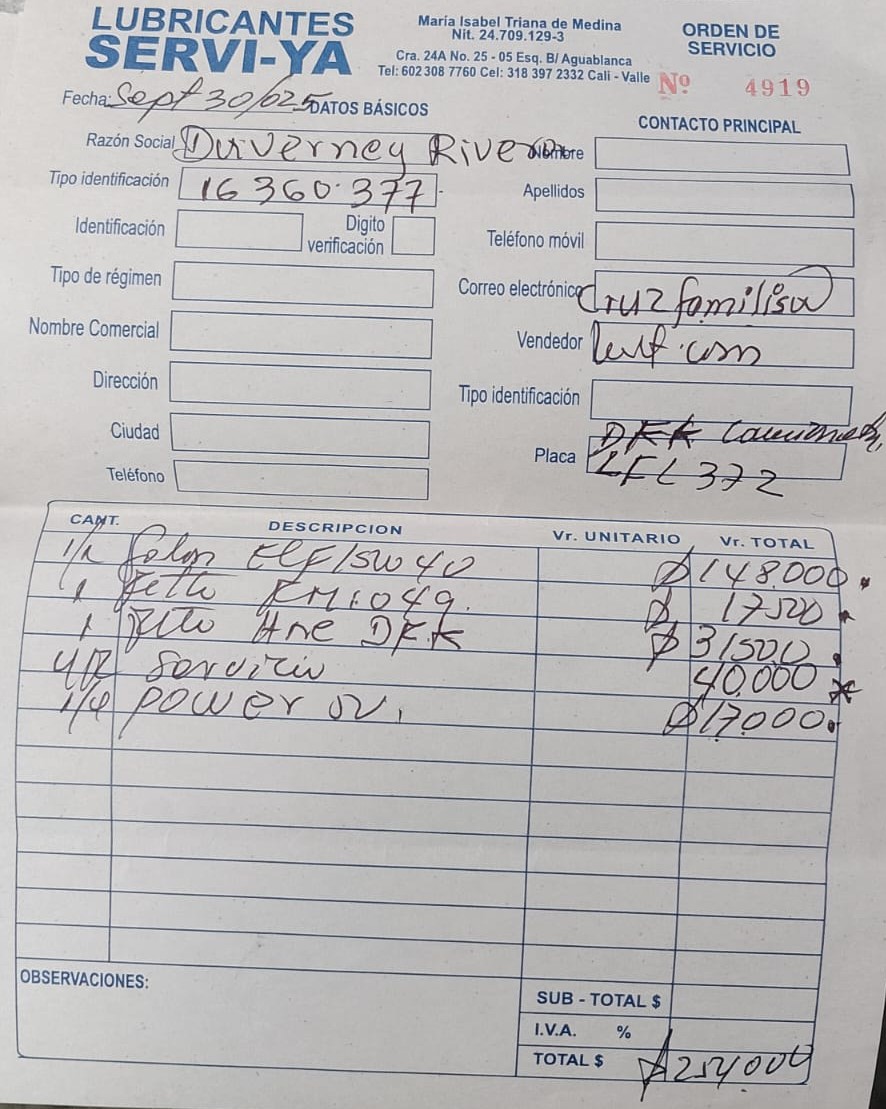 LUBRICANTES
SERVI-YA
María Isabel Triana de Medina
Nit. 24.709.129-3
Cra. 24A No. 25 - 05 Esq. B/ Aguablanca
Tel: 602 308 7760 Cel: 318 397 2332 Cali - Valle
ORDEN DE
SERVICIO
Nº 4919
Fecha: Sept 30/025
DATOS BÁSICOS
CONTACTO PRINCIPAL
Razón Social Duverney Rivera
Nombre
Tipo identificación 16 360.377
Apellidos
Identificación
Digito
verificación
Teléfono móvil
Tipo de régimen
Correo electrónico cruzfamilisa
Nombre Comercial
Vendedor .com
Dirección
Tipo identificación
Ciudad
DFK
Placa LFL 372
Teléfono
CANT. DESCRIPCION Vr. UNITARIO Vr. TOTAL
ELF 15W40 $148.000
1 $ 17500
1 DFK $31500
Servicio 40.000
1/4 power $17000
OBSERVACIONES:
SUB - TOTAL $
I.V.A. %
TOTAL $ $254000